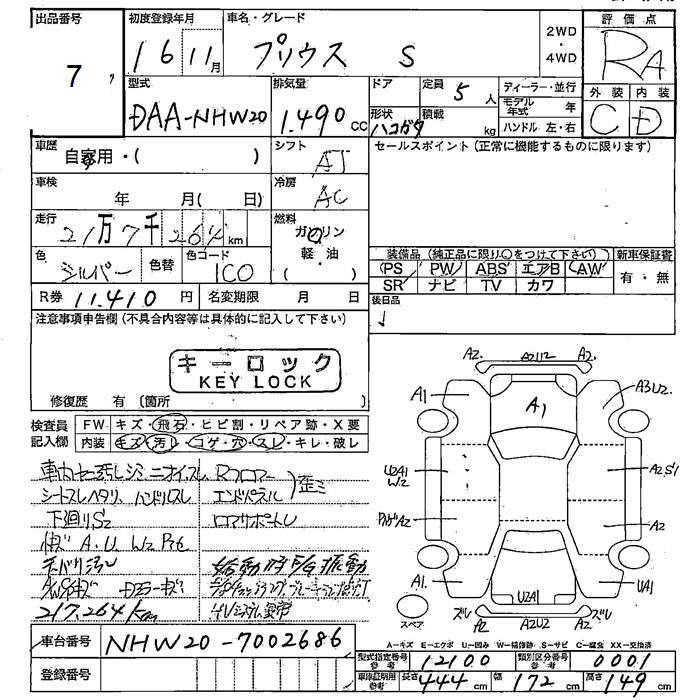 出品番号 初度登録年月 車名・グレード 2WD 評価点
7 16 11月 プリウス S ・4WD RA
型式 排気量 ドア 定員 5人 ディーラー・並行 外装 内装
DAA-NHW20 1.490 CC 形状 ハコガタ 積載 kg モデル年式 年 C D
ハンドル 左・右
車歴 自家用・( ) シフト AT セールスポイント(正常に機能するものに限ります)
車検 年 月( 日) 冷房 AC
走行 21万7千264km 燃料 ガソリン
軽・油
( )
色 シルバー 色替 色コード 1C0
装備品(純正品に限り○をつけて下さい) 新車保証書
PS PW ABS エアB AW 有・無
SR ナビ TV カワ
R券 11.410円 名変期限 月 日 後日品
注意事項申告欄(不具合内容等は具体的に記入して下さい)
キーロック
KEY LOCK
修復歴 有(箇所
検査員 FW キズ・飛石・ヒビ割・リペア跡・X要
記入欄 内装 キズ・汚レ・コゲ・穴・スレ・キレ・破レ
シートスレヘタリ、ハンドルスレ エンドパネル 歪ミ
下廻りS2
A.U. W2
217,264km
A2. A2U2 A2.
A1 A1 A3U2.
U2A1
W2 A2.S1
A2 A2
A1. U2A1 UA1
スペア ズレ A2 A2U2 A2 ズレ
A-キズ E-エクボ U-凹み W-補修跡 S-サビ C-腐食 XX-交換済
車台番号 NHW20-7002686
型式指定番号 参考 12100 類別区分番号 参考 0001
登録番号
車庫証明用 参考 長さ 444cm 幅 172cm 高さ 149cm